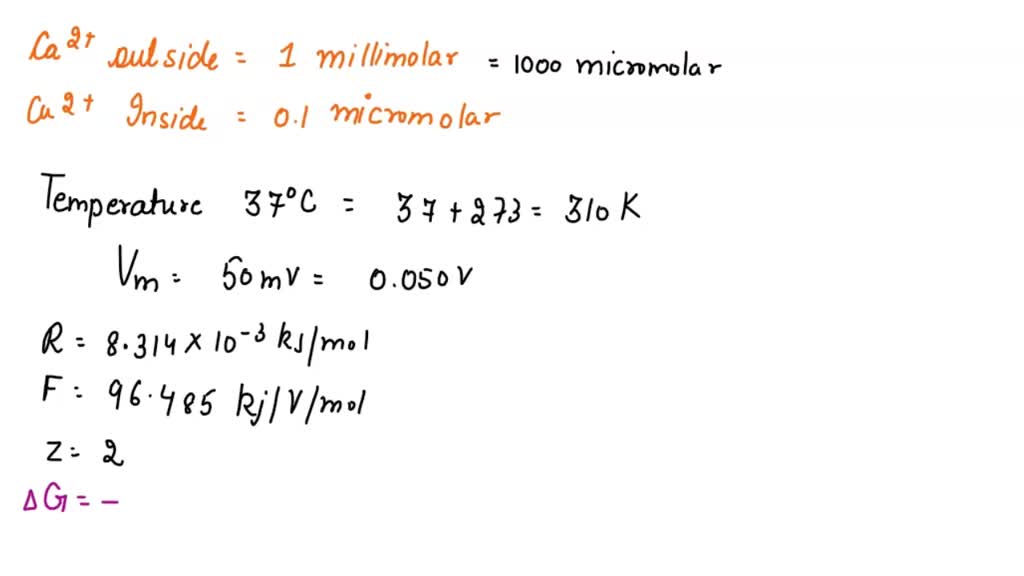 Ca2+ outside = 1 millimolar = 1000 micromolar
Ca2+ Inside = 0.1 micromolar
Temperature 37°C = 37 + 273 = 310 K
Vm = 50 mV = 0.050 V
R = 8.314 × 10-3 kJ/mol
F = 96.485 kj/V/mol
Z = 2
ΔG = -